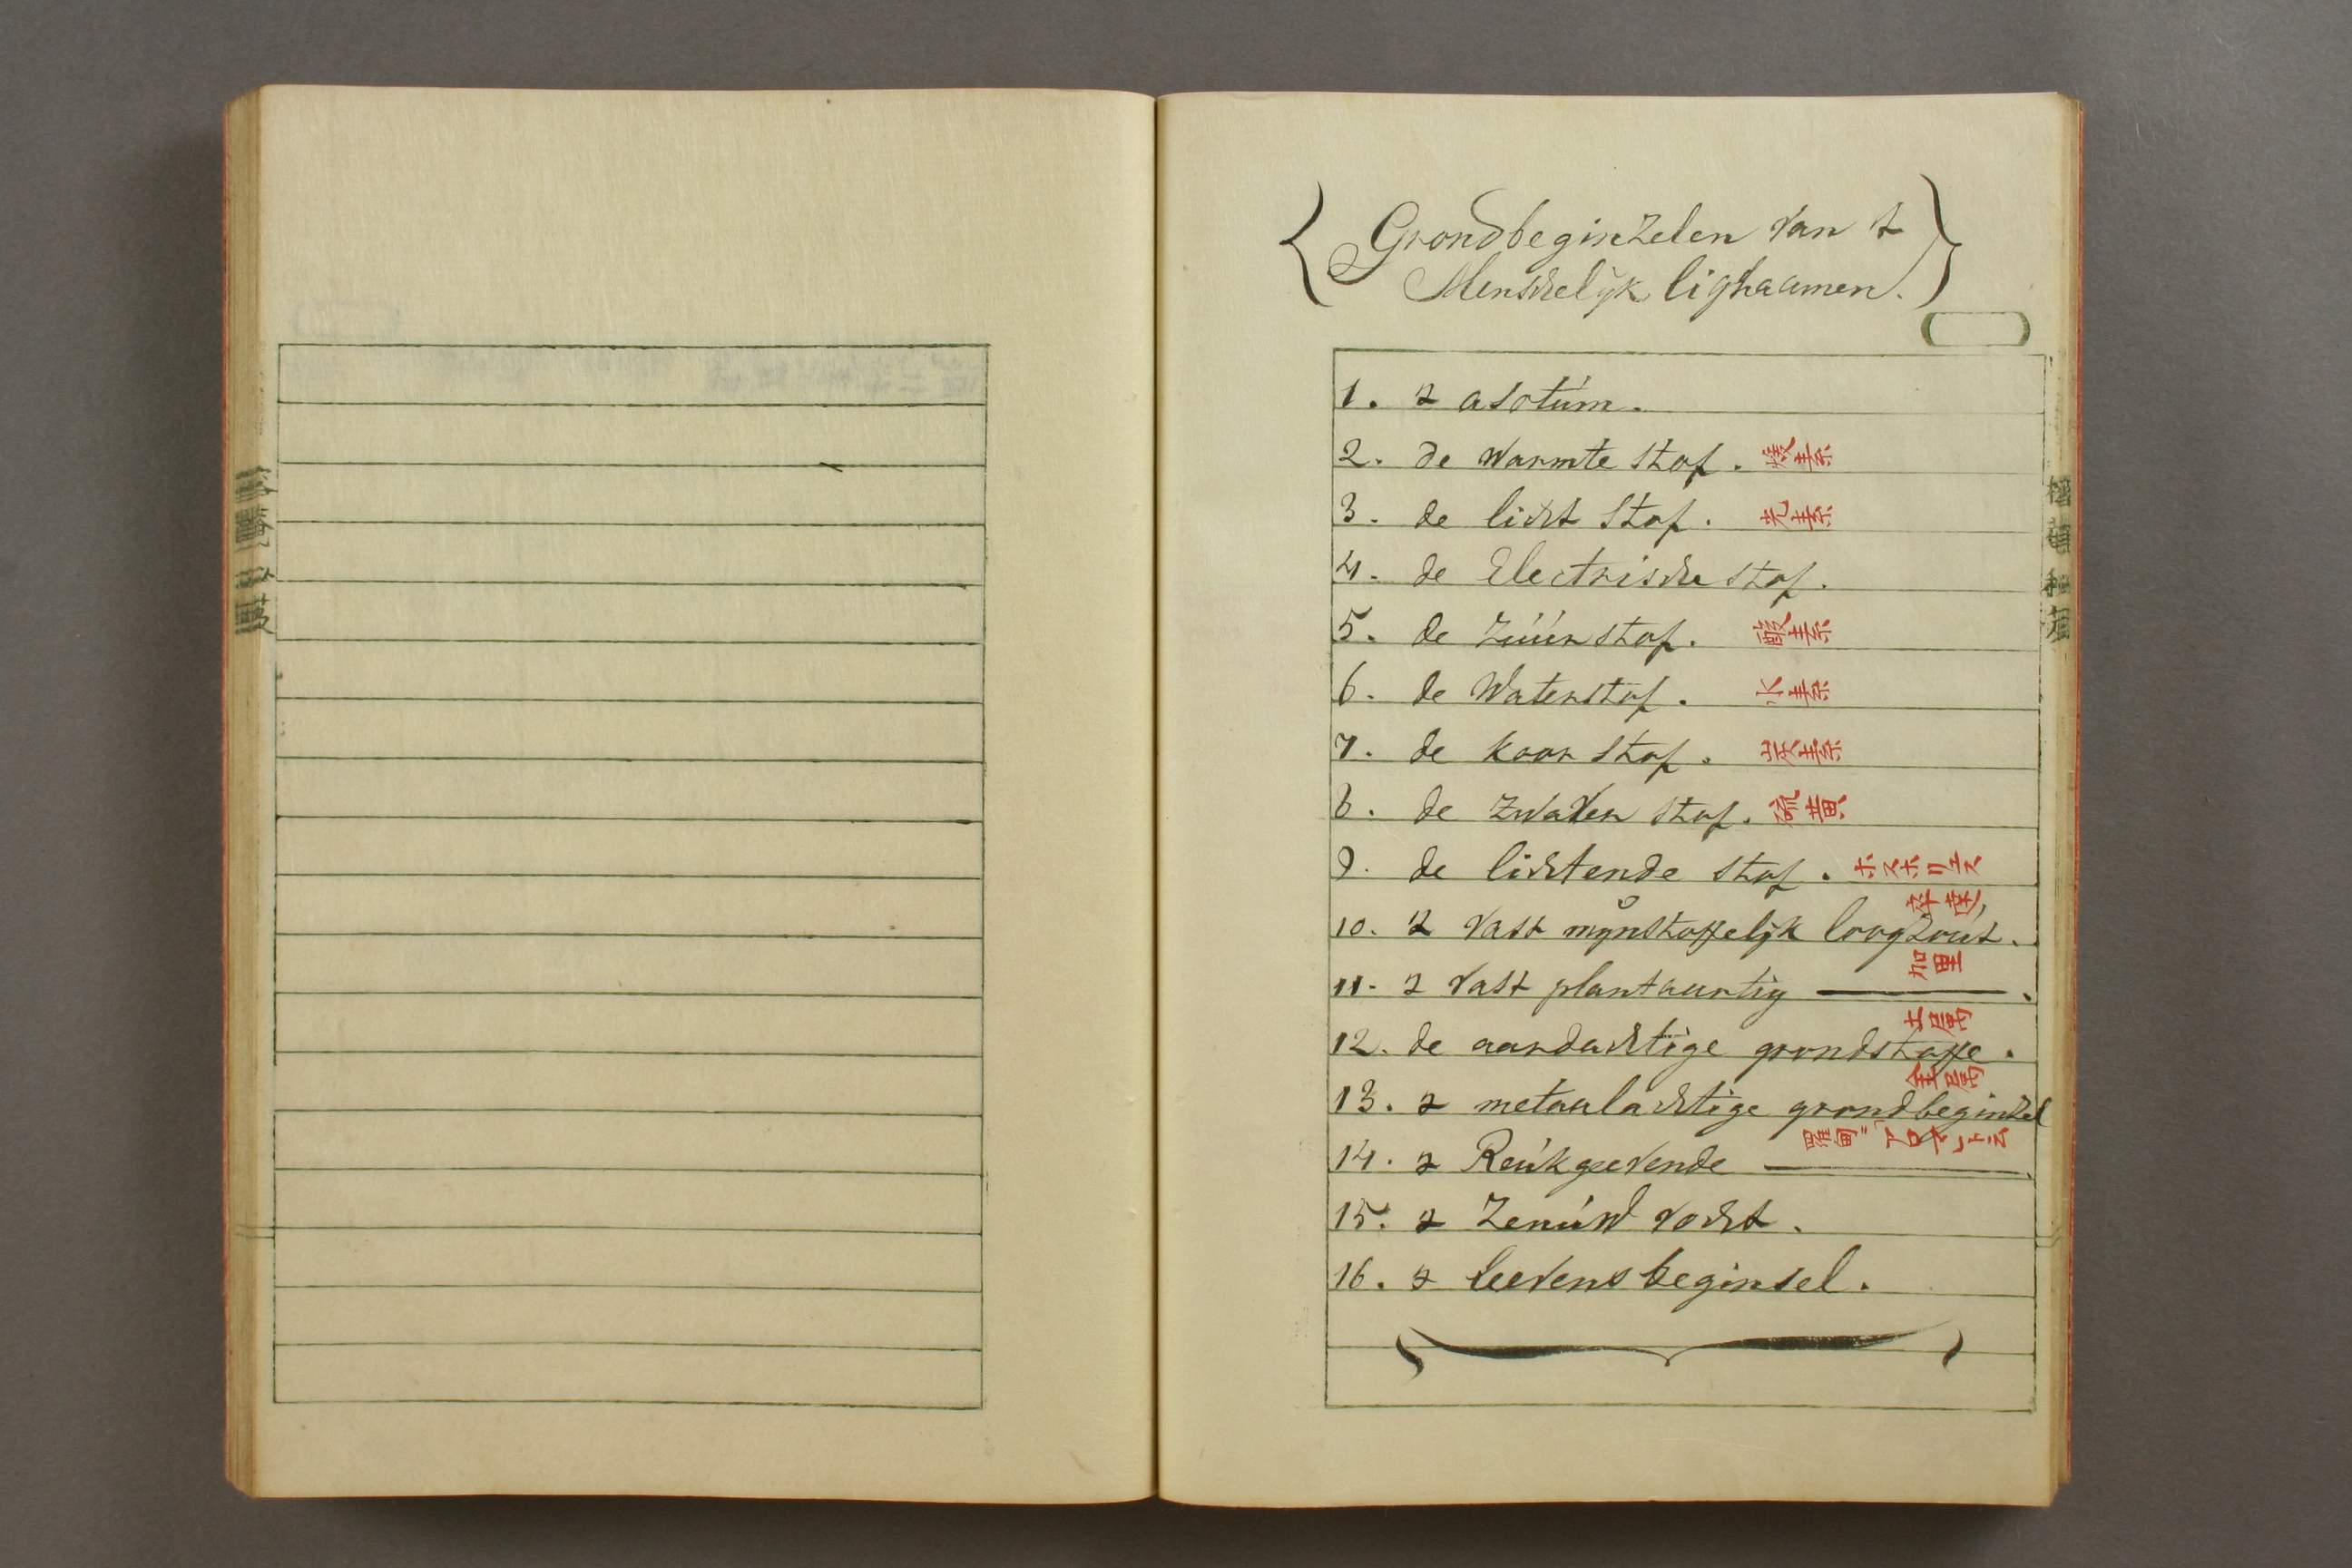 Grondbeginzelen van t
Menschelijk lighaamen.
1. t asotúm.
2. de warmte stof. 煖素
3. de licht stof. 光素
4. de Electrische stof.
5. de Zúúrstof. 酸素
6. de Waterstof. 水素
7. de kool stof. 炭素
8. de zwavel stof. 硫黄
9. de lichtende stof. ホスホリュス
10. t vast mynstoffelyk loogzout.
11. t vast plantaartig ———. 加里
12. de aardachtige grondstoffe. 土属
13. t metaalachtige grondbeginzel 金属
14. t Reúkgeevende ———. 羅甸
15. t Zenúw vocht.
16. t leevensbeginsel.